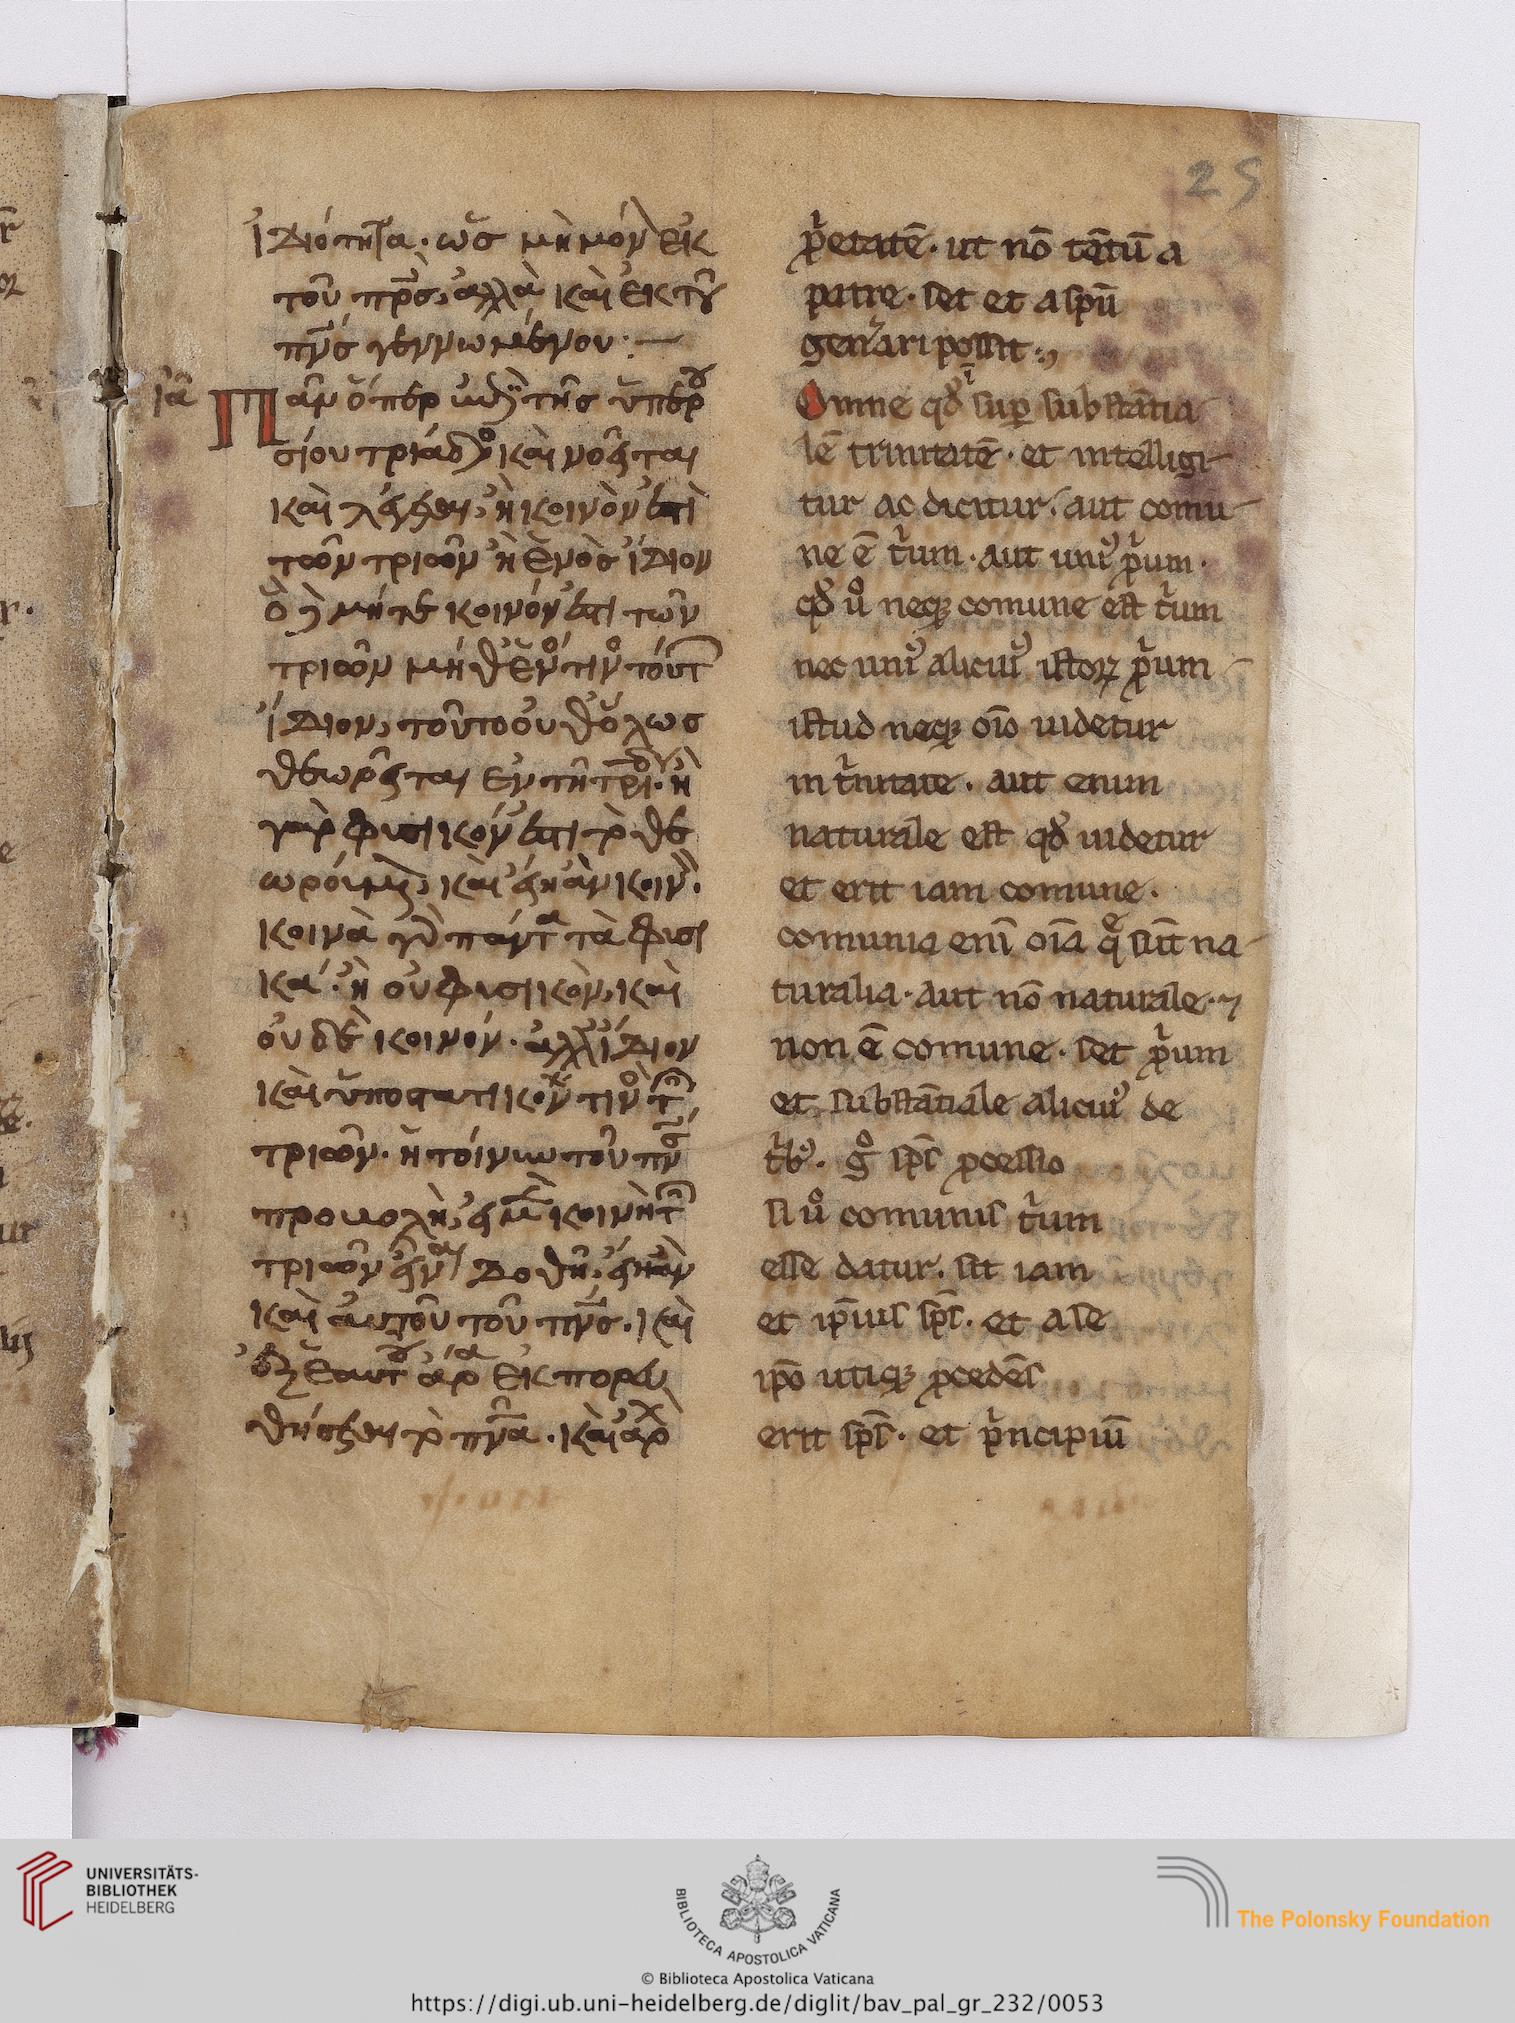 25
ἰδιότητα· ὡς μὴ μόν ἐκ
τοῦ πρς, ἀλλὰ καὶ ἐκ του
πνς γεννωμένου:—
ια
Πᾶν ὅπερ ἐπὶ τῆς ὑπερου
σίου τριάδος καὶ νοεῖται
καὶ λέγεται, ἢ κοινὸν ἐστὶ
τῶν τριῶν ἢ ἑνὸς ἴδιον
ὃ δὲ μήτε κοινόν ἐστι τῶν
τριῶν μήθ' ἑνός τινος τούτ
ἴδιον, τοῦτο οὐθ' ὅλως
θεωρεῖται ἐν τῇ τρι· ἢ
γὰρ φυσικόν ἐστι τὸ θε
ωρούμεν, καὶ εἴη ἂν κοιν·
κοινὰ γὰρ πάντα τὰ φυσι
κά· ἢ οὐ φυσικὸν, καὶ
οὐδὲ κοινόν· ἀλλ' ἴδιον
καὶ ὑποστατικόν τινος τ
τριῶν· ἡ τοίνυν τοῦ πν
προβολὴ, εἰ μὲν κοινὴ τ
τριῶν εἶναι δοθῇ, εἴη ἂν
καὶ αὐτοῦ τοῦ πνς· καὶ
ἐξ ἑαυτοῦ ἄρα ἐκπορευ
θήσεται τὸ πνα· καὶ ἀρχ
p̃etatē· ut nō tētū a
patre· set et a spū
gen̾ari possit·,
Omne qď i sup̱ substātia
lē trinitatē· et intelligi-
tur ac dicitur· aut comu-
ne ē t̾um· aut uni᾽ p̾um·
qď u̾o neq; comune est t̾um
nec uni᾽ aliciui᾽ istoꝝ p̾um
istud neq; oīo uidetur
in t̾nitate· aut enim
naturale est qď uidetur
et erit iam comune·
comunia eni̅ oīa q̄ sūt na-
turalia· aut nō naturale· ⁊
non ē comune· set p̾um
et substātiale aliciui᾽ de
t̾b᾽· g̊ sp̄s p̱cessio
si u̾o comunis t̾um
esse datur· sit iam
et ip̄ius sp̄s· et a se
ip̄o utiq; p̱cedēs
erit sp̄s· et p̾ncipiū
UNIVERSITÄTS-
BIBLIOTHEK
HEIDELBERG
BIBLIOTECA APOSTOLICA VATICANA
The Polonsky Foundation
© Biblioteca Apostolica Vaticana
https://digi.ub.uni-heidelberg.de/diglit/bav_pal_gr_232/0053